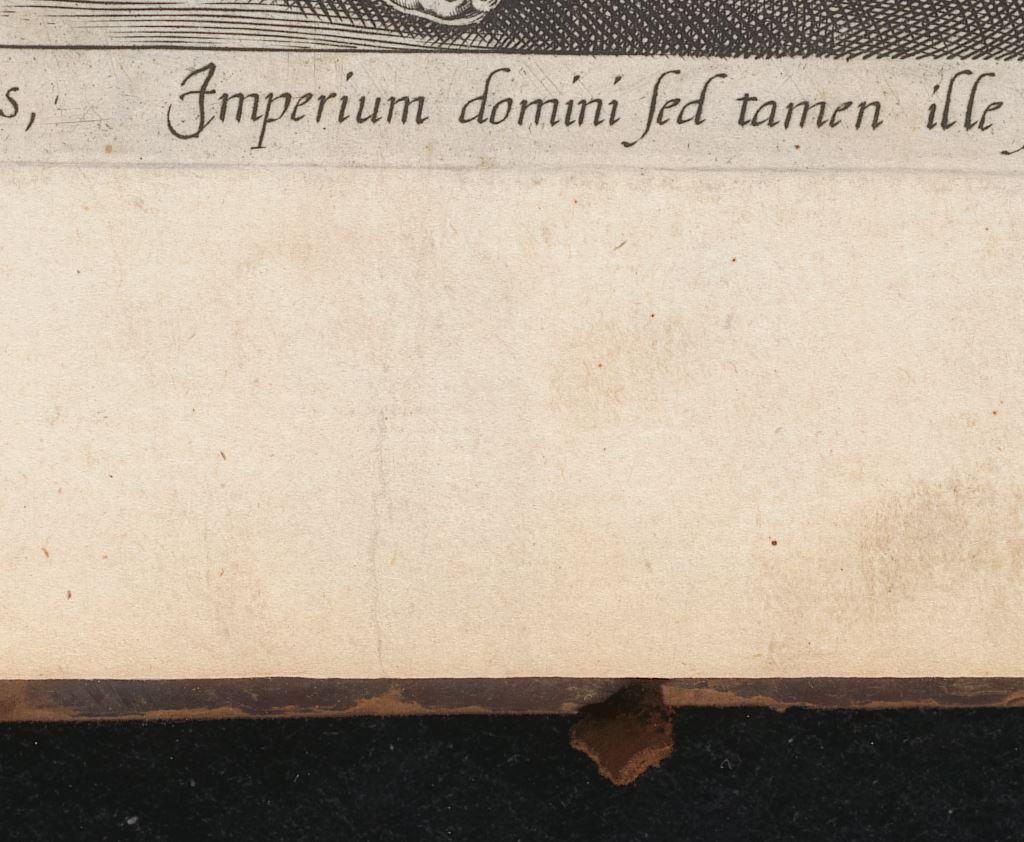 s, Imperium domini ſed tamen ille